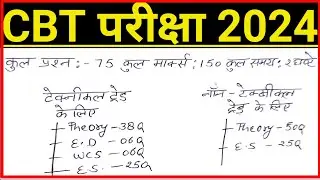 CBT परीक्षा 2024
कुल प्रश्न:- 75 कुल मार्क्स:150 कुल समय: 2 घण्टे
टेक्नीकल ट्रेड
के लिए
Theory-38Q
E.D -06Q
WCS -06Q
E.S -25Q
नॉन-टेक्नीकल
ट्रेड के लिए
Theory-50Q
E.S -25Q